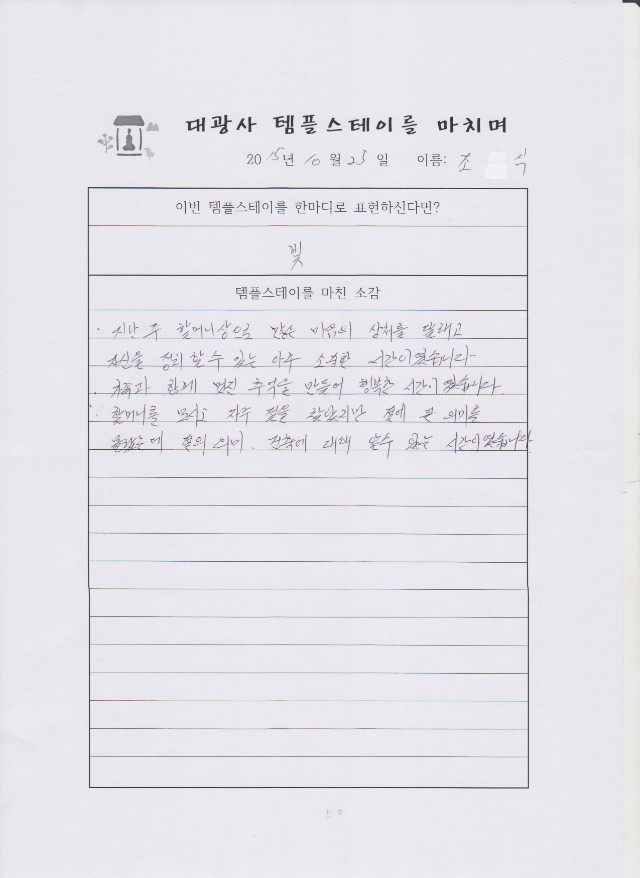 대광사 템플스테이를 마치며
2015년 10월 25일 이름: 조 식
이번 템플스테이를 한마디로 표현하신다면?
빛
템플스테이를 마친 소감
· 지난 주 할머니상으로 많은 마음의 상처를 달래고
자신을 정리할 수 있는 아주 소중한 시간이였습니다
· 가족과 함께 멋진 추억을 만들어 행복한 시간이였습니다.
할머니를 모시고 자주 절을 찾았지만 절에 큰 의미를
몰랐는데 절의 의미. 건축에 대해 알수 있는 시간이였습니다